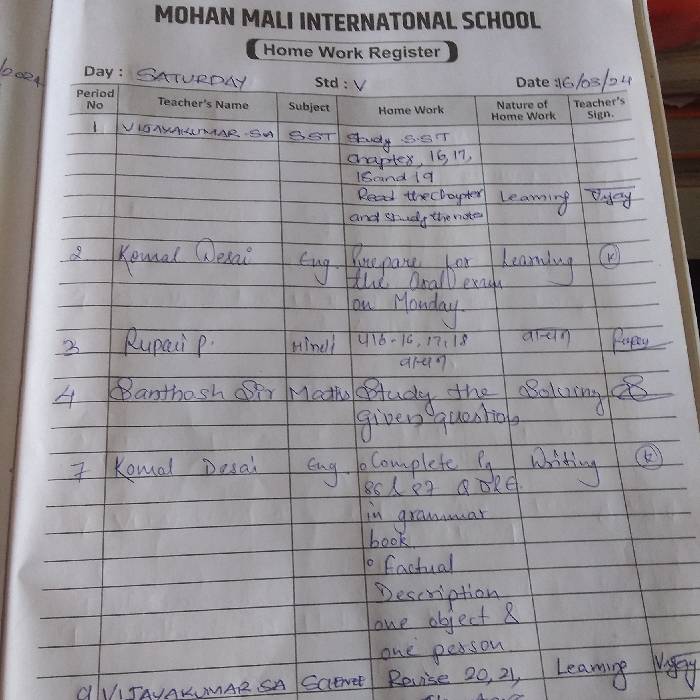 MOHAN MALI INTERNATONAL SCHOOL
Home Work Register
Day : SATURDAY Std : V Date : 16/03/24
Period No Teacher's Name Subject Home Work Nature of Home Work Teacher's Sign.
1 VIJAYAKUMAR SA SST Study S.S.T
chapter, 16, 17,
18 and 19
Read the chapter Learning Vijay
and study the note
2 Komal Desai Eng. Prepare for Learning K
the Oral exam
on Monday.
3 Rupali P. Hindi पाठ - 16, 17, 18 वाचन
वाचन
4 Santhosh Sir Maths Study the Solving
given question
7 Komal Desai Eng. Complete Pg Writing K
86 & 87 Q D & E.
in grammar
book
Factual
Description
one object &
one person
VIJAYAKUMAR SA Science Revise 20, 21, Learning Vijay